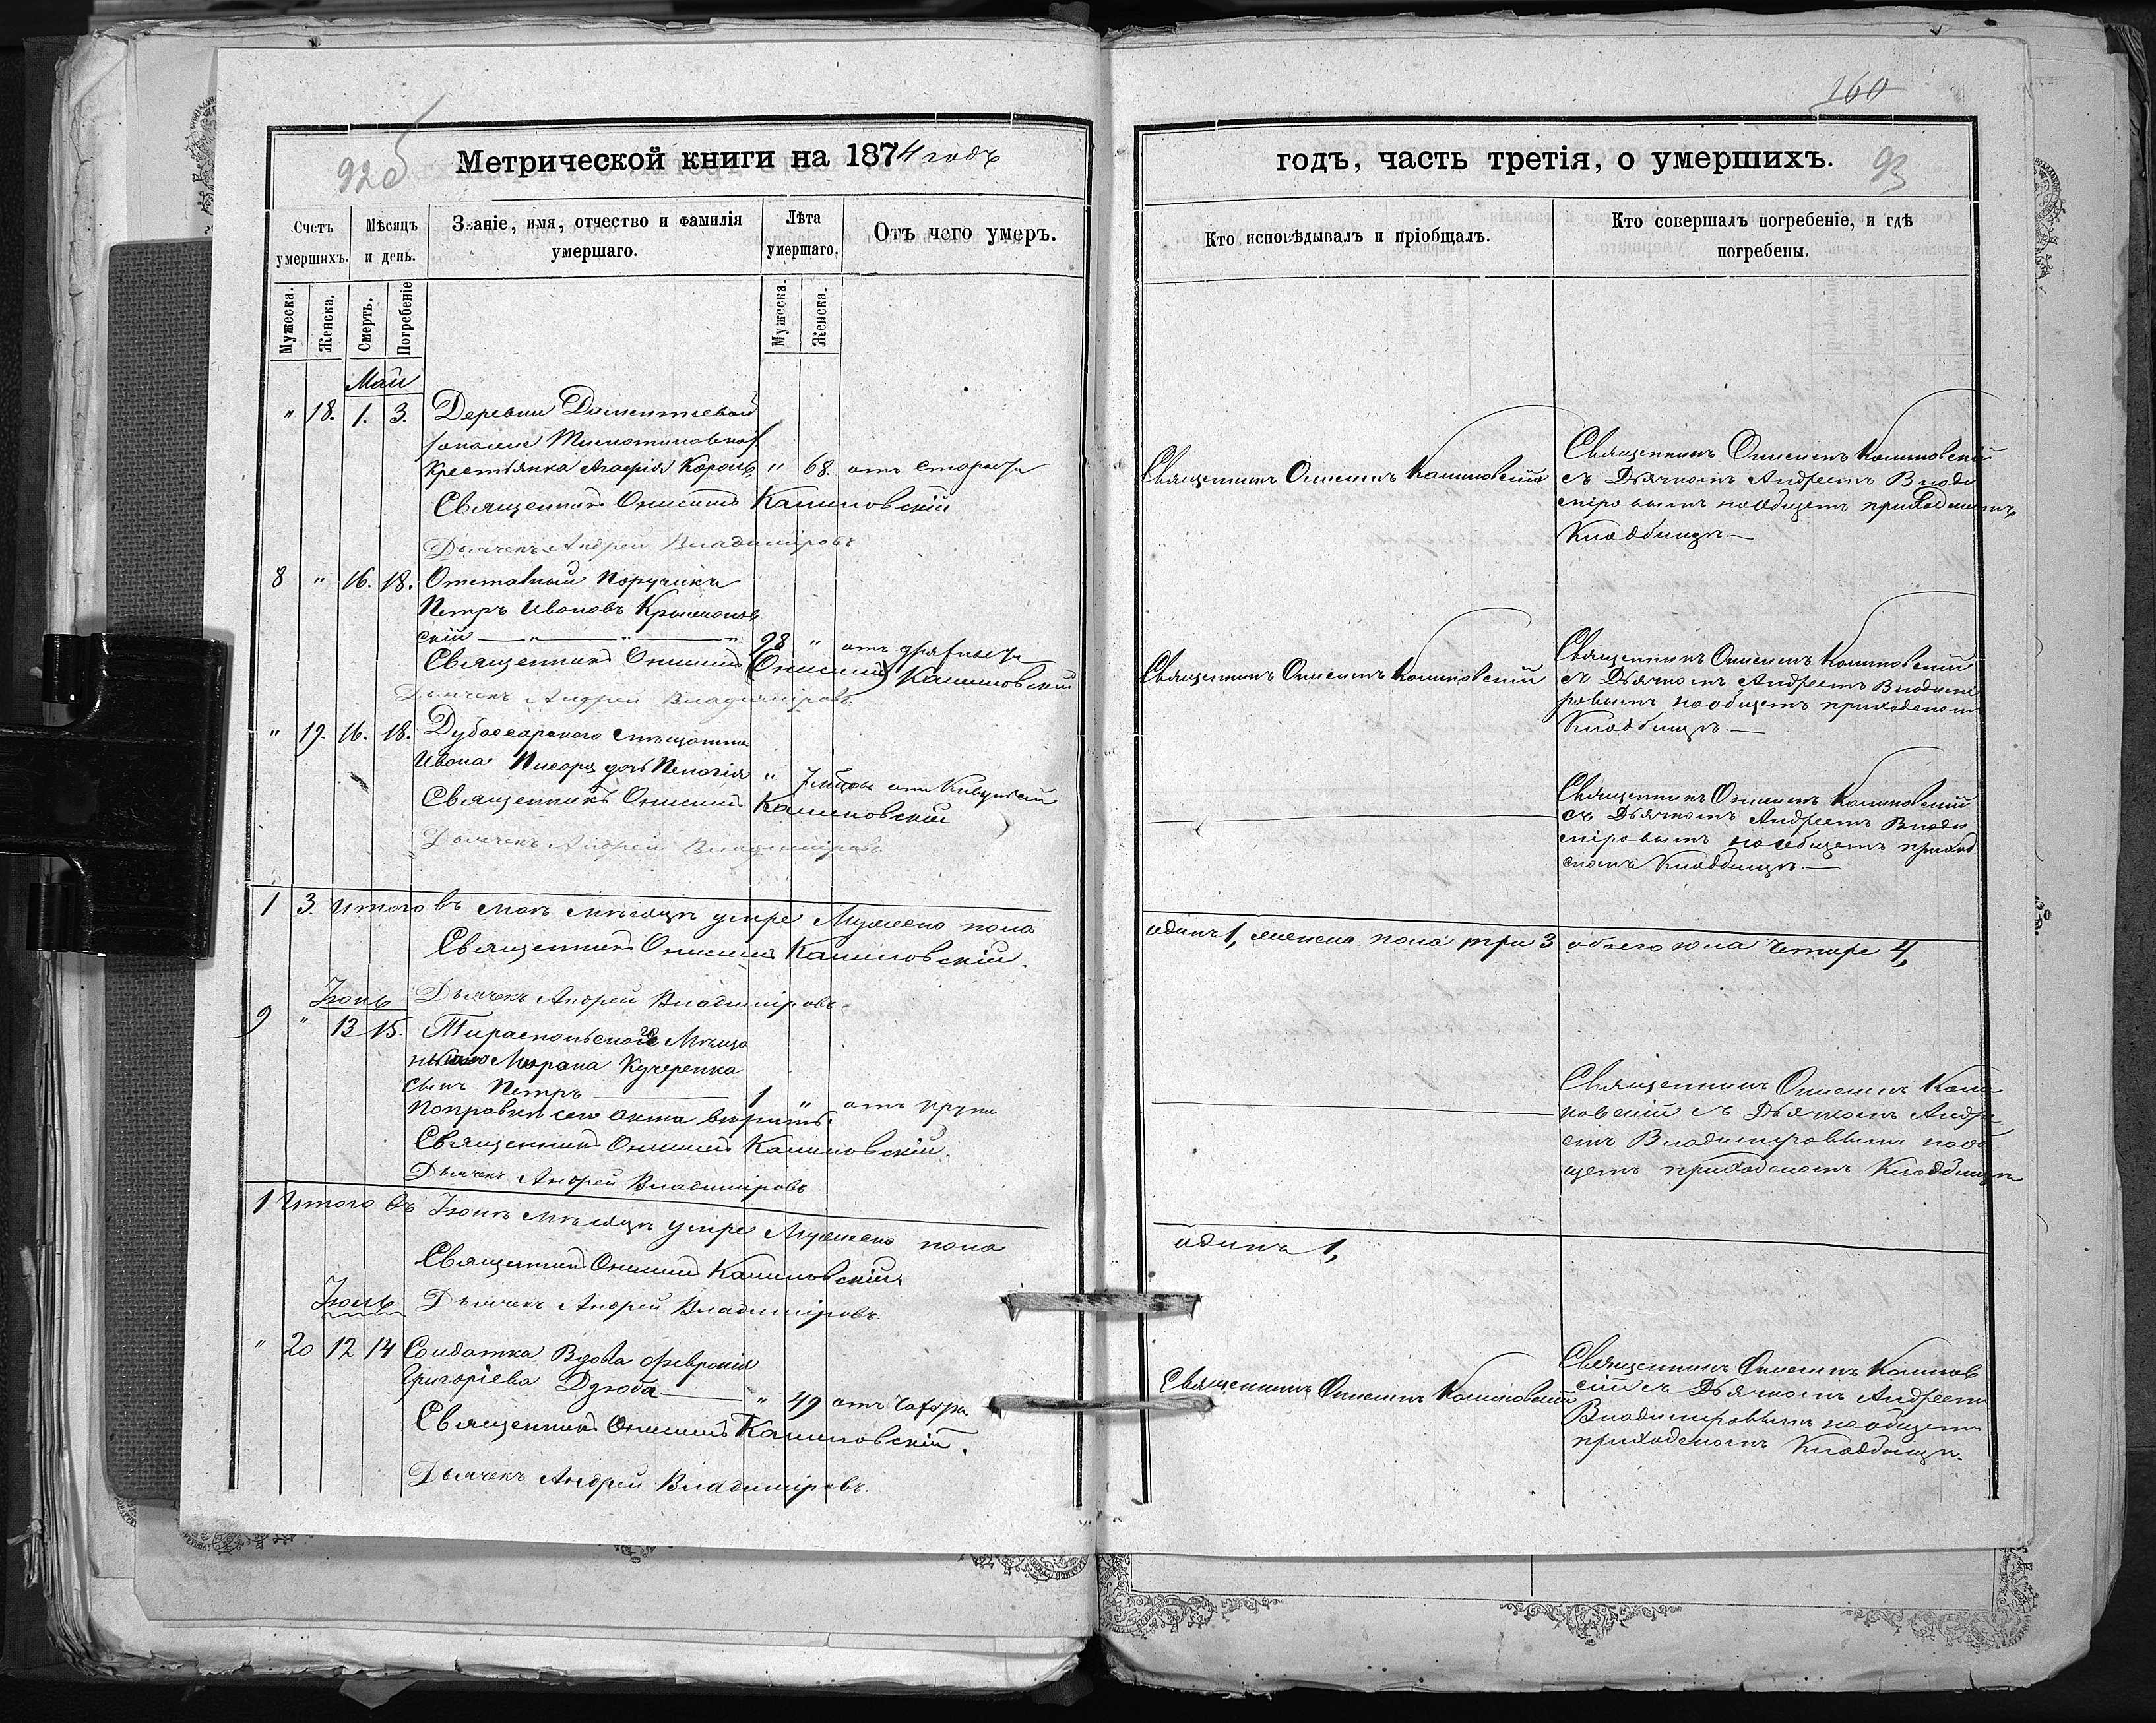 160
92б
Метрической книги на 1874 годъ
Счетъ умершихъ.
Мѣсяцъ и день.
Званіе, имя, отчество и фамилія умершаго.
Лѣта умершаго.
Отъ чего умеръ.
Мужеска.
Женска.
Смерть.
Погребеніе
Мужеска.
Женска.
Май
" 18. 1. 3. Деревни
Крестьянка Агафія Король " 68. отъ старости
Священникъ Онисимъ Калиновскій
Дьячекъ Андрей Владиміровъ
8 " 16. 18. Отставный Поручикъ
Петръ Ивановъ
скій — " — " — " 98 " отъ дряхлости
Священникъ Онисимъ (Онисимъ) Калиновскій
Дьячекъ Андрей Владиміровъ
" 19. 16. 18. Дубоссарского мѣщанина
Ивана Писаря дочь Пелагія "
Священникъ Онисимъ Калиновскій
Дьячекъ Андрей Владиміровъ
1 3. Итого въ маѣ мѣсяцѣ умре Мужеска пола
Священникъ Онисимъ Калиновскій.
Дьячекъ Андрей Владиміровъ
Іюнь
9 " 13 15. Тираспольского Мѣща
Кучеренка
сынъ Петръ — 1 " отъ крупа
Поправка сего акта вѣрить.
Священникъ Онисимъ Калиновскій.
Дьячекъ Андрей Владиміровъ
1 Итого въ Іюнѣ мѣсяцѣ умре Мужеска пола
Священникъ Онисимъ Калиновскій.
Іюль
Дьячекъ Андрей Владиміровъ.
" 20 12 14 Солдатка Вдова Февронія
Григоріева Дзюба — " 49
Священникъ Онисимъ Калиновскій.
Дьячекъ Андрей Владиміровъ.
годъ, часть третія, о умершихъ.
93
Кто исповѣдывалъ и пріобщалъ.
Кто совершалъ погребеніе, и гдѣ погребены.
Священникъ Онисимъ Калиновскій
Священникъ Онисимъ Калиновскій
съ Дьячкомъ Андреемъ Влади
міровымъ на общемъ приходскомъ
Кладбищѣ.—
Священникъ Онисимъ Калиновскій
Священникъ Онисимъ Калиновскій
съ Дьячкомъ Андреемъ Владимі
ровымъ на общемъ приходском
Кладбищѣ.—
Священникъ Онисимъ Калиновскій
съ Дьячкомъ Андреемъ Влади
міровымъ на общемъ приход
скомъ Кладбищѣ.—
одинъ 1, женска пола три 3 обоего пола четыре 4,
Священникъ Онисимъ Кали
новскій съ Дьячкомъ Андре
емъ Владиміровымъ на об
щемъ приходскомъ Кладбищѣ
одинъ 1,
Священникъ Онисимъ Калиновскій
Священникъ Онисимъ Калинов
скій съ Дьячкомъ Андреемъ
Владиміровымъ на общемъ
приходскомъ Кладбищѣ.